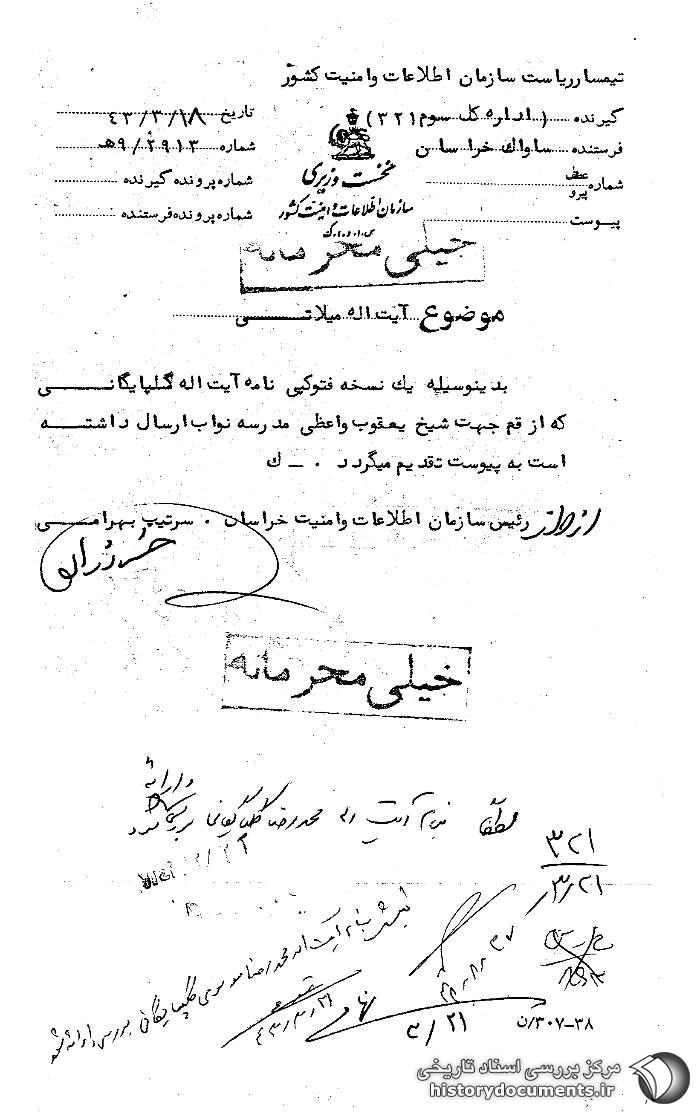 تیمسار ریاست سازمان اطلاعات و امنیت کشور
گیرنده (اداره کل سوم ۳۲۱)
تاریخ ۴۳/۳/۱۸
فرستنده ساواک خراسان
شماره ۲۹۱۳/۹هـ
نخست وزیری
سازمان اطلاعات و امنیت کشور
س.ا.و.ا.ک
شماره عطف پیرو
شماره پرونده گیرنده
پیوست
شماره پرونده فرستنده
خیلی محرمانه
موضوع آیت اله میلانی
بدینوسیله یک نسخه فتوکپی نامه آیت اله گلپایگانی
که از قم جهت شیخ یعقوب واعظی مدرسه نواب ارسال داشته
است به پیوست تقدیم میگردد . ـ ک
رئیس سازمان اطلاعات و امنیت خراسان . سرتیپ بهرامی
از طرف
خیلی محرمانه
لطفا بنام آیت اله محمدرضا گلپایگانی بررسی شود
و ارائه
۳۲۱
۳/۲۱
بنام آیت اله محمدرضا موسوی گلپایگانی بررسی و ارائه شود
۴۳/۳/۲۱
۳/۲۱
۳۸-۳۰۷/ن
مرکز بررسی اسناد تاریخی
historydocuments.ir